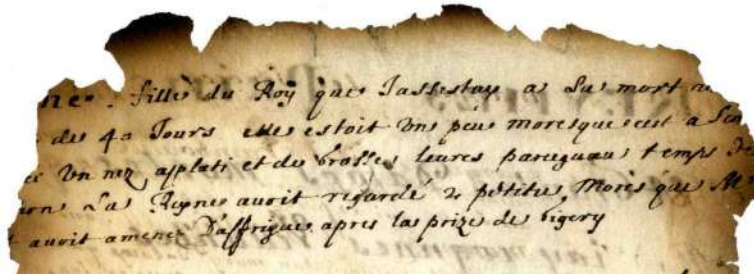 fille du Roy que Jassestay a La mort
de 42 Jours elle estoit Une peu moresque cest a
Un nez applati et de Grosses leures parcequau temps
La Reyne auoit regardé 2 petits Mores que
auoit amené D'affrique apres la prize de Gigery